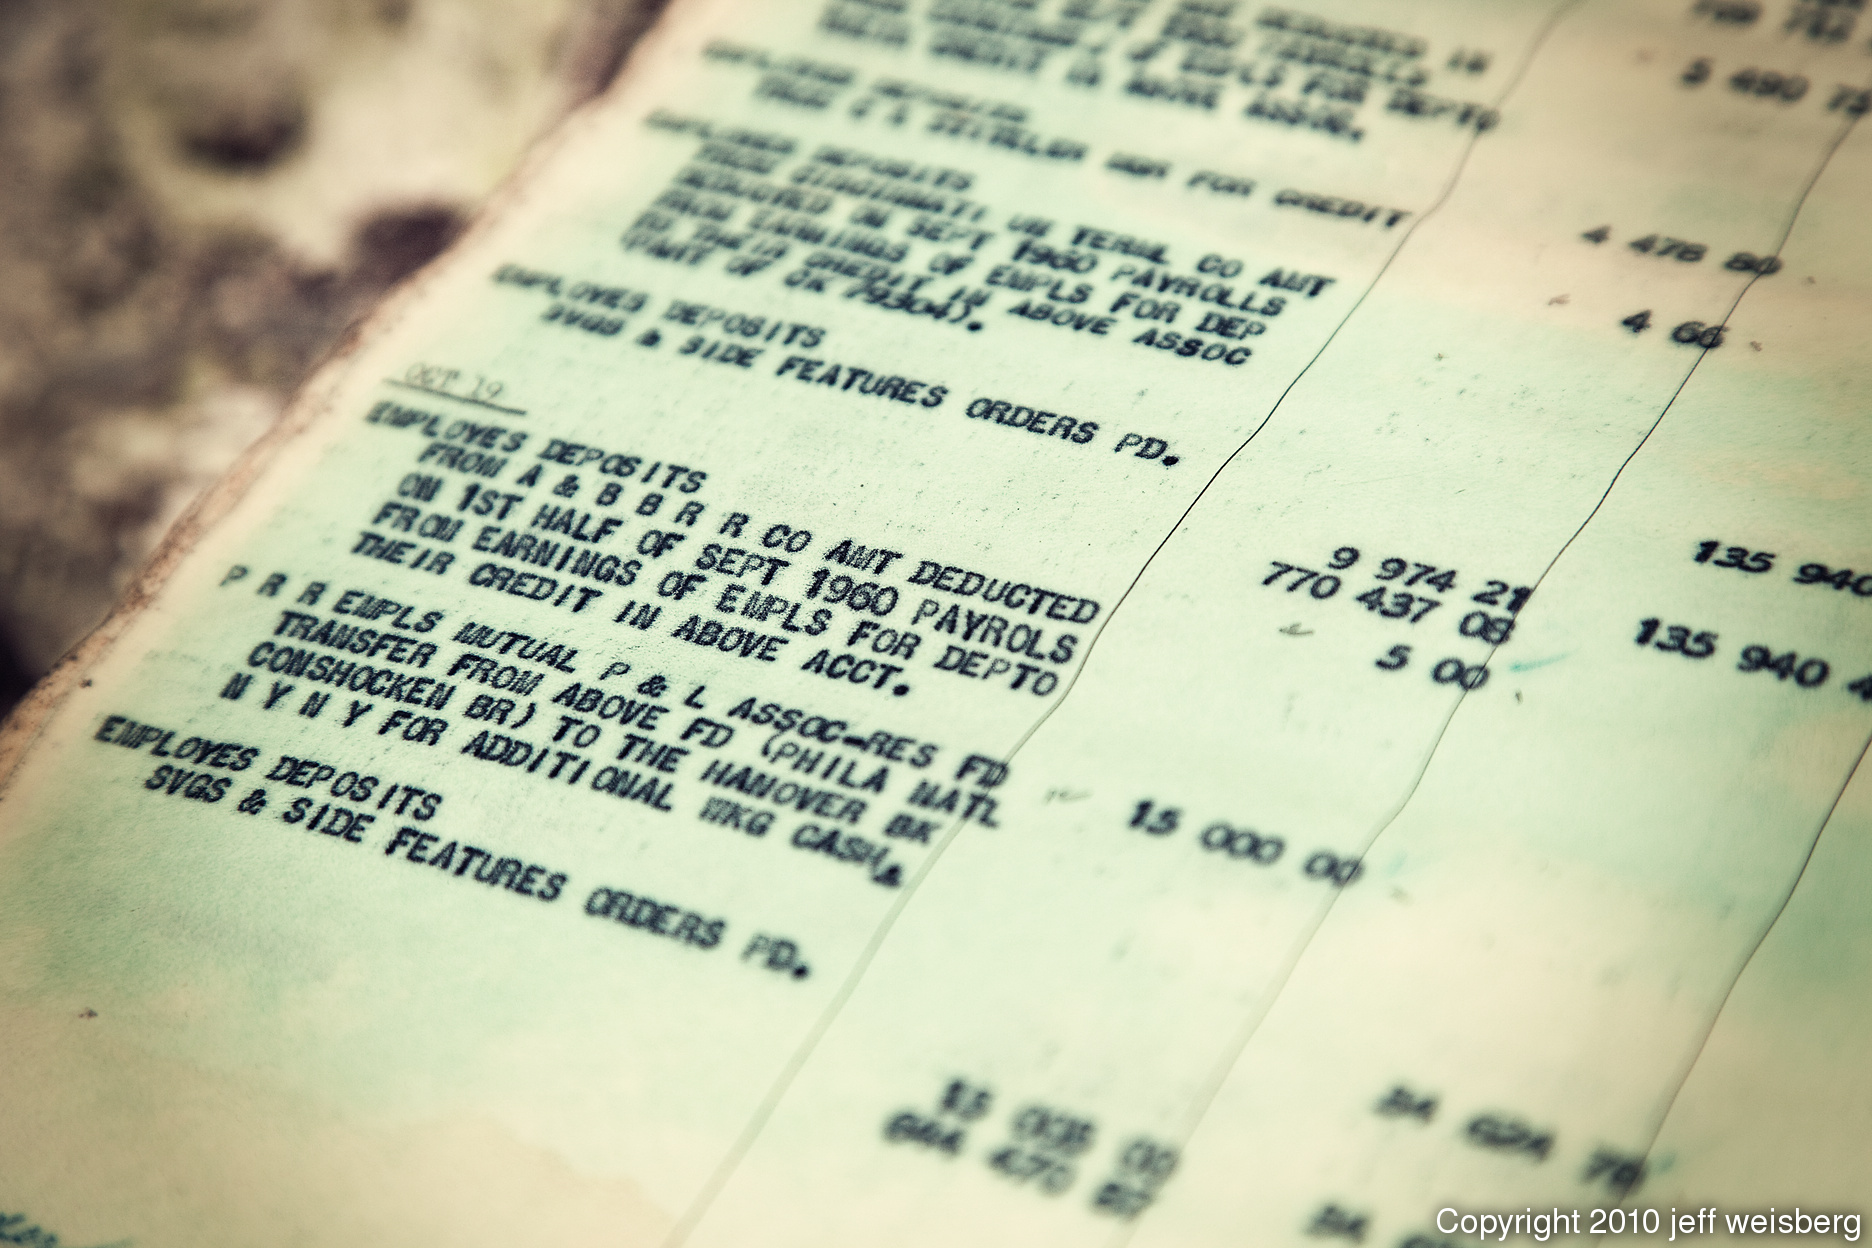 EMPLS FOR DEPTO
THEIR CREDIT IN ABOVE ASSOC.
5 490
EMPLOYES DEPOSITS
FOR CREDIT
4 478 80
EMPLOYES DEPOSITS
FROM CINCINNATI UN TERML CO AMT
DEDUCTED ON SEPT 1960 PAYROLLS
FROM EARNINGS OF EMPLS FOR DEP
TO THEIR CREDIT IN ABOVE ASSOC
(PART OF CK 79304).
4 66
EMPLOYES DEPOSITS
SVGS & SIDE FEATURES ORDERS PD.
135 940
9 974 21
770 437 08
135 940 4
OCT 19
EMPLOYES DEPOSITS
FROM A & B B R R CO AMT DEDUCTED
ON 1ST HALF OF SEPT 1960 PAYROLS
FROM EARNINGS OF EMPLS FOR DEPTO
THEIR CREDIT IN ABOVE ACCT.
5 00
P R R EMPLS MUTUAL P & L ASSOC-RES FD
TRANSFER FROM ABOVE FD (PHILA NATL
CONSHOCKEN BR) TO THE HANOVER BK
N Y N Y FOR ADDITIONAL WKG CASH.
15 000 00
EMPLOYES DEPOSITS
SVGS & SIDE FEATURES ORDERS PD.
84 624 76
15 005 00
Copyright 2010 jeff weisberg